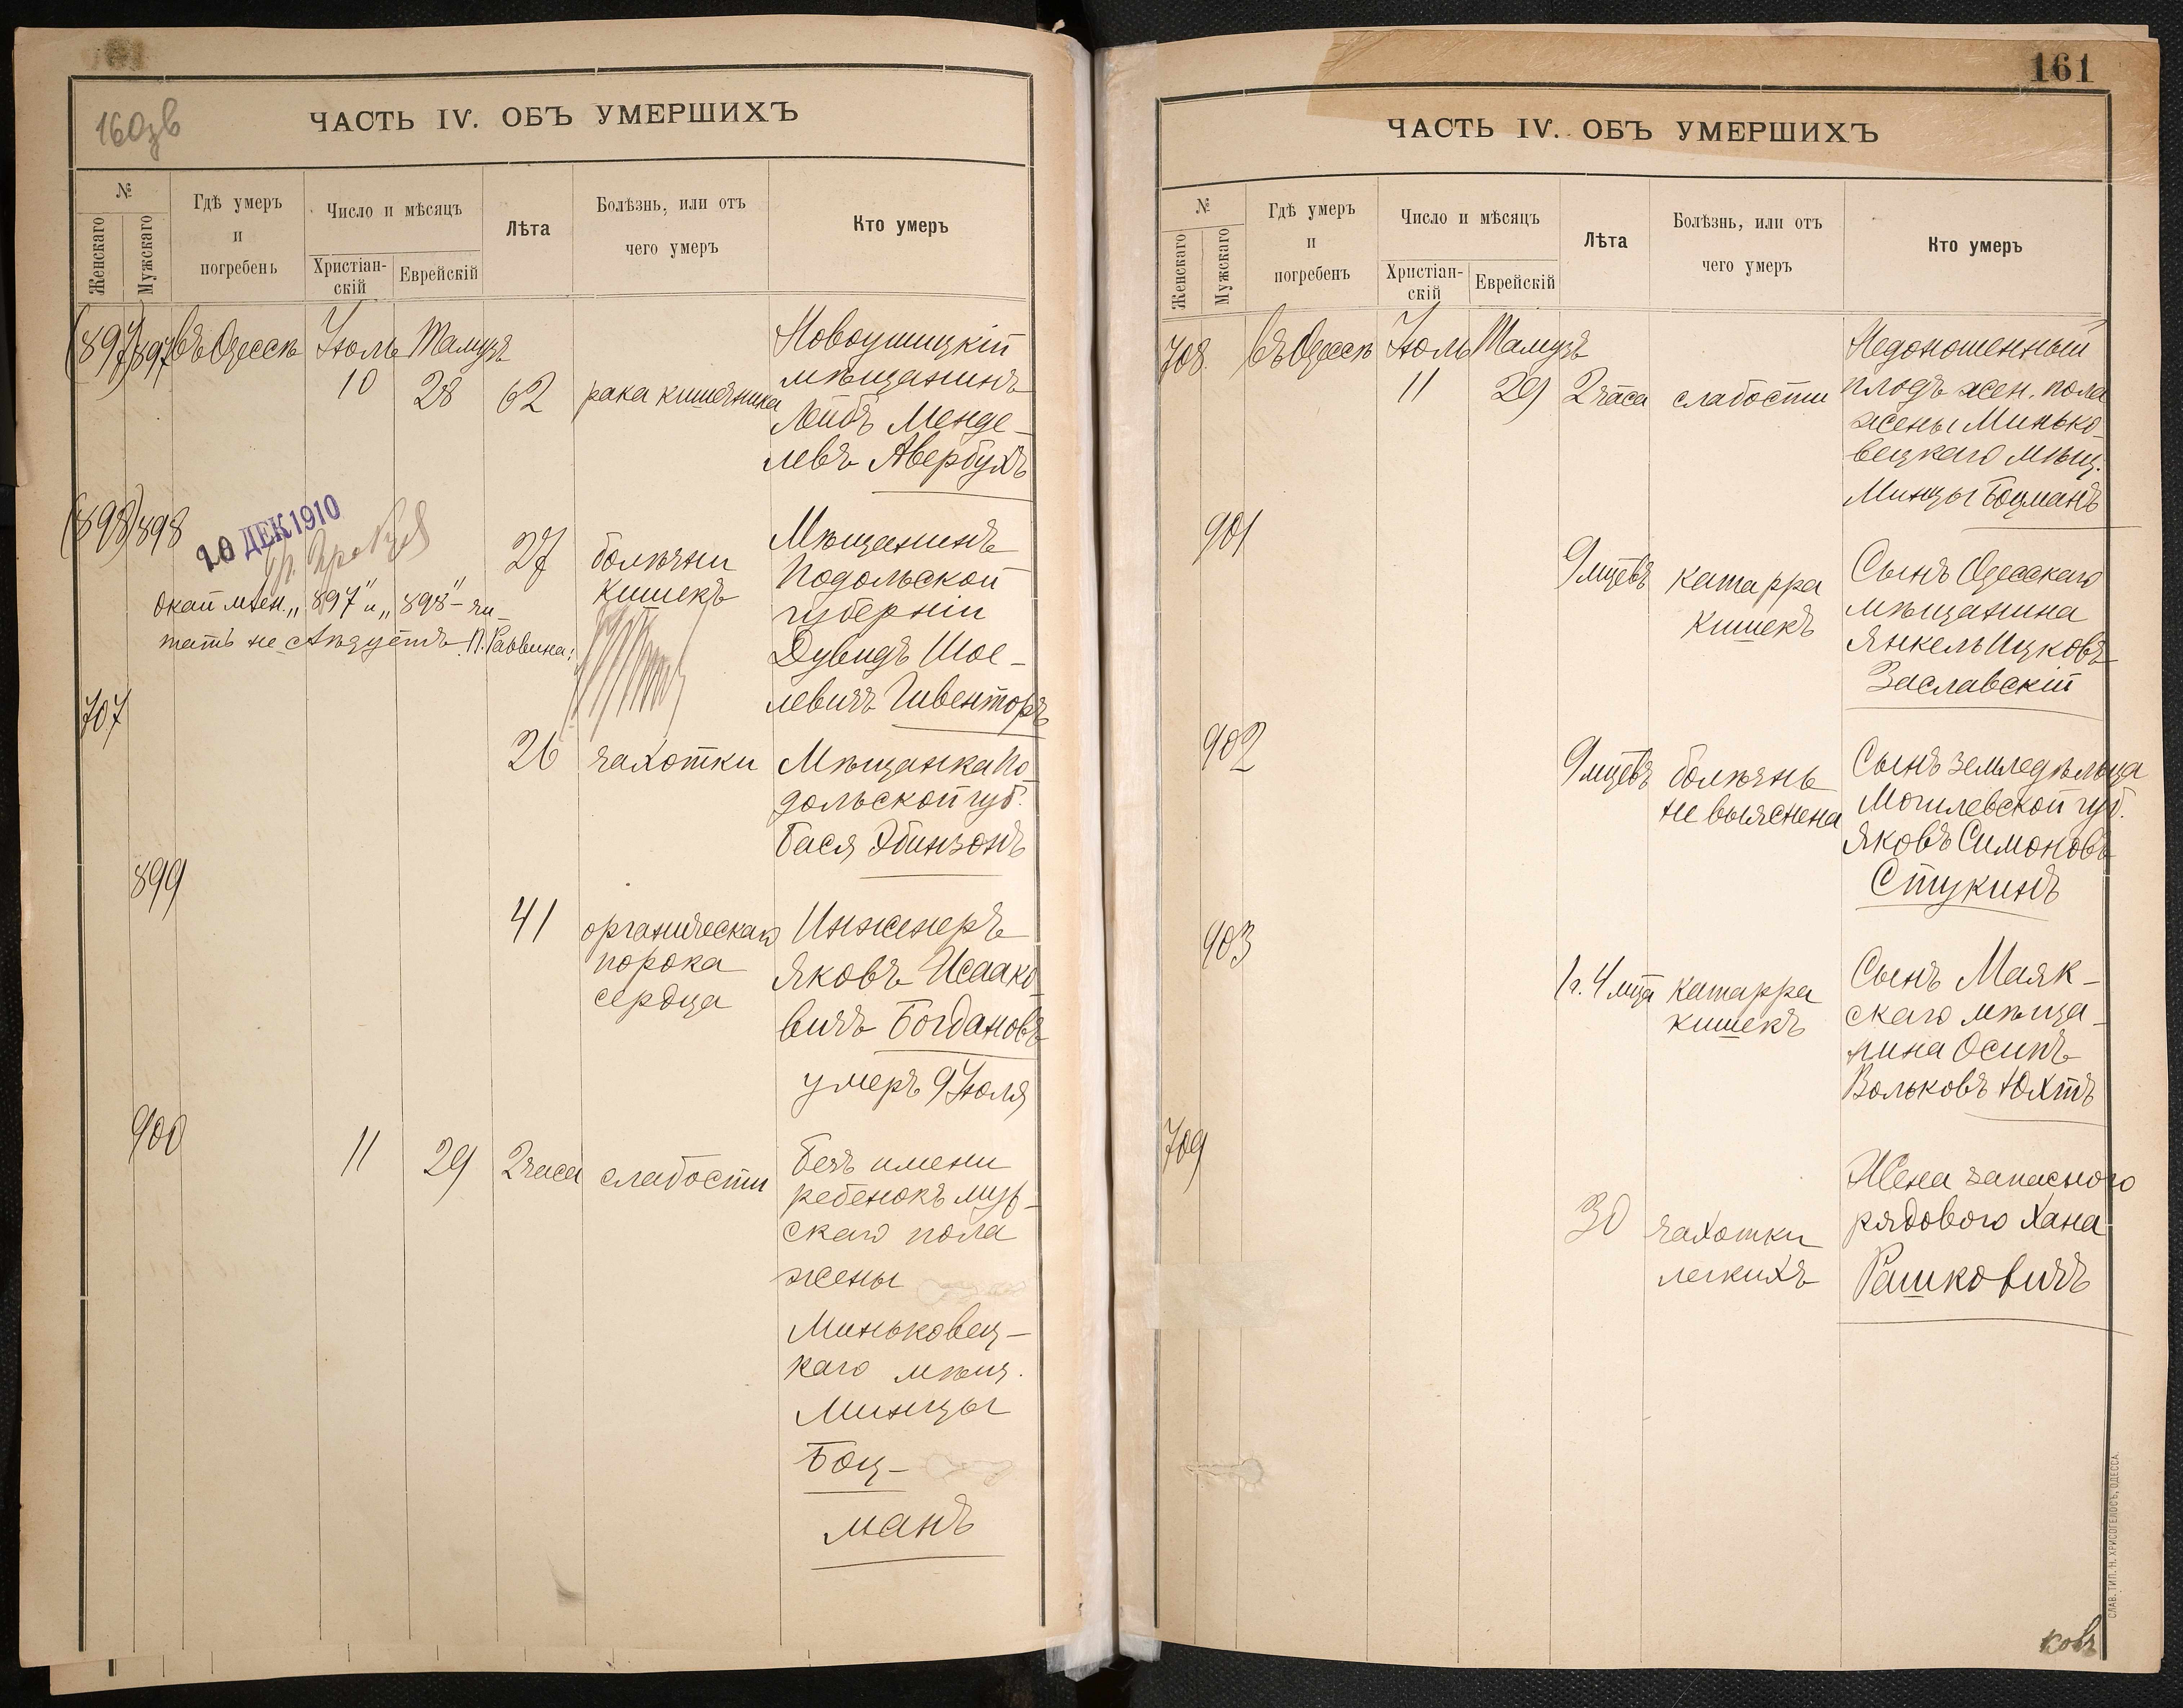 160зв
ЧАСТЬ IV. ОБЪ УМЕРШИХЪ
№
Женскаго
Мужскаго
Гдѣ умеръ
и
погребень
Число и мѣсяцъ
Христіан-
скій
Еврейскій
Лѣта
Болѣзнь, или отъ
чего умеръ
Кто умеръ
(897) 897 въ Одессѣ Іюль Тамузъ
10 28 62 рака кишечника
Новоушицкій
мѣщанинъ
Лейбъ Менде-
левъ Авербухъ
(898) 898
10 ДЕК 1910
27 болѣзни
кишекъ
Мѣщанинъ
Подольской
губерніи
Дувидъ Шое-
левичъ Гивенторъ
окаймлен. „897" и „898" - чи-
тать не слѣдуетъ. П. Раввина:
707
26 чахотки
Мѣщанка По-
дольской губ.
Бася Эбинзонъ
899
41 органическаго
порока
сердца
Инженеръ
Яковъ Исаако-
вичъ Богдановъ
умеръ 9 Іюля
900
11 29 2 часа слабости
Безъ имени
ребенокъ муж-
скаго пола
жены
Миньковец-
каго мѣщ.
Минцы
Боц-
манъ
161
ЧАСТЬ IV. ОБЪ УМЕРШИХЪ
№
Женскаго
Мужскаго
Гдѣ умеръ
и
погребенъ
Число и мѣсяцъ
Христіан-
скій
Еврейскій
Лѣта
Болѣзнь, или отъ
чего умеръ
Кто умеръ
708. въ Одессѣ Іюль Тамузъ
11 29 2 часа слабости
Недоношенный
плодъ жен. пола
жены Минько-
вецкаго мѣщ.
Минцы Боцманъ
901
9 мцевъ катарра
кишекъ
Сынъ Одесскаго
мѣщанина
Янкель Ицковъ
Заславскій
902
9 мцевъ болѣзнь
не выяснена
Сынъ земледѣльца
Могилевской губ.
Яковъ Симоновъ
Стукинъ
903
1 г. 4 мца катарра
кишекъ
Сынъ Маяк-
скаго мѣща-
нина Осипъ
Вольковъ Юхтъ
709
30 чахотки
легкихъ
Жена запасного
рядового Хана
Рашковичъ
ковъ
СЛАВ. ТИП. Н. ХРИСОГЕЛОСЪ, ОДЕССА.